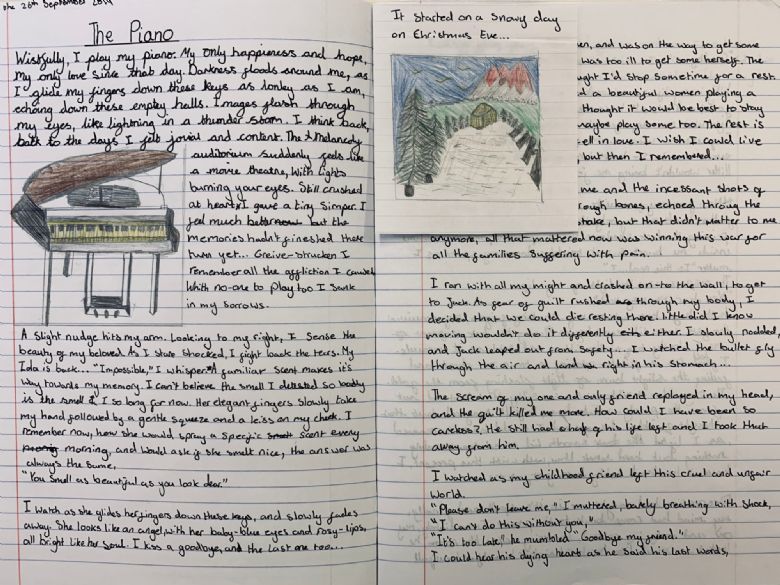 the 26th September 2019
The Piano
Wistfully, I play my piano. My only happieness and hope,
My only love since that day. Darkness floods around me, as
I glide my fingers down these keys as lonley as I am,
echoing down these empty halls. Images flash through
my eyes, like lightning in a thunder storm. I think back,
back to the days I felt jovial and content. The Melancody
auditorium suddenly feels like
a movie theatre, with lights
burning your eyes. Still crushed
at heart I gave a tiny simper. I
feel much but the
memories hadn't fineshed there
turn yet... Greive-strucken I
remember all the affliction I caused
With no-one to play too I sunk
in my sorrows.
A slight nudge hits my arm. Looking to my right, I sense the
beauty of my beloved. As I stare shocked, I fight back the tears. My
Ida is back... "Impossible," I whisper. A familiar scent makes it's
way towards my memory. I can't believe the smell I detested so badly
is the smell I so long for now. Her elegant fingers slowly take
my hand followed by a gentle squeze and a kiss on my cheek. I
remember now, how she would spray a specific scent every
morning, and would ask if she smelt nice, the answer was
always the same,
"You smell as beautiful as you look dear."
I watch as she glides her fingers down these keys, and slowly fades
away. She looks like an angel, with her baby-blue eyes and rosy-lips,
all bright like her soul. I kiss a goodbye, and the last one too...
It started on a snowy day
on Christmas Eve...
en, and was on the way to get some
was too ill to get some herself. The
ught I'd stop sometime for a rest.
d a beautiful women playing a
thought it would be best to stay
maybe play some too. The rest is
ell in love. I wish I could live
, but then I remembered...
me and the incessant shots of
rough bones, echoed throug the
shake, but that didn't matter to me
anymore, all that mattered now was winning this war for
all the families suffering with pain.
I ran with all my might and crashed on-to the wall, to get
to Jack. As fear of guilt rushed through my body, I
decided that we could die resting there. Little did I know
moving wouldn't do it differently either. I slowly nodded,
and Jack leaped out from safety... I watched the bullet fly
through the air and land right in his stomach...
The scream of my one and only friend replayed in my head,
and the guilt killed me more. How could I have been so
careless? He still had a half of his life left and I took that
away from him.
I watched as my childhood friend left this cruel and unfair
world.
"Please don't leave me," I muttered, barely breathing with shock,
"I can't do this without you,"
"It's too late," he mumbled "Goodbye my friend."
I could hear his dying heart as he said his last words,